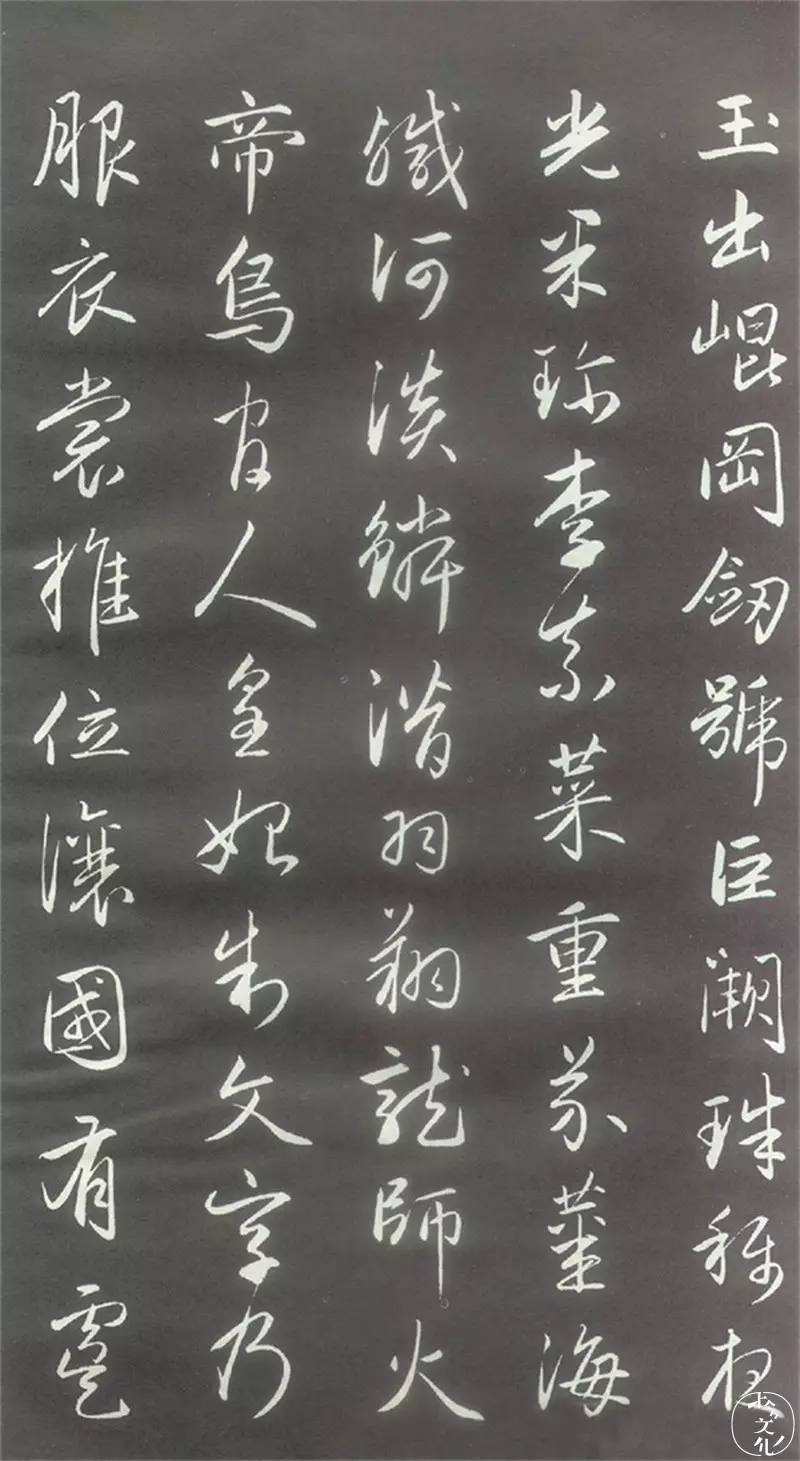 玉出崐岡劒號巨闕珠称夜
光果珍李柰菜重芥薑海
鹹河淡鱗潛羽翔龍師火
帝鳥官人皇始制文字乃
服衣裳推位讓國有虞
文化